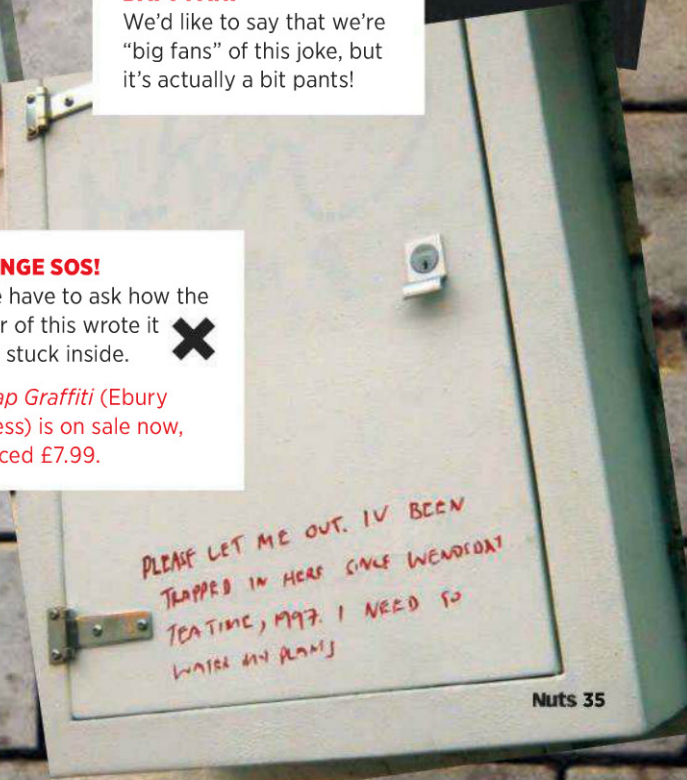 We'd like to say that we're
"big fans" of this joke, but
it's actually a bit pants!
NGE SOS!
e have to ask how the
r of this wrote it
stuck inside.
ap Graffiti (Ebury
ess) is on sale now,
ced £7.99.
PLEASE LET ME OUT. IV BEEN
TRAPPED IN HERE SINCE WENDSDAY
TEATIME, 1997. I NEED TO
WATER MY PLANTS
Nuts 35